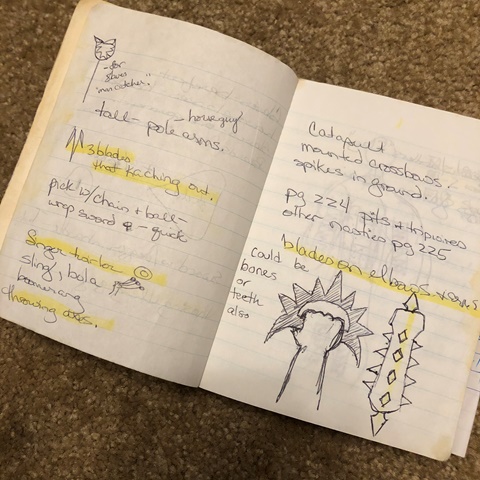 -for
"man catcher."
tall- pole arms.
3 blades
that kaching out.
pick w/ chain + ball-
wrap sword - quick
sling, bola
boomerang
throwing axes.
Catapult
mounted crossbows.
spikes in ground.
pg 224 pits + tripwires
other nasties pg 225
blades on elbows + arms
could be
bones
or
teeth
also